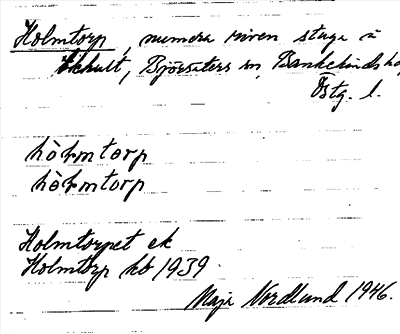 Holmtorp, numera riven stuga i
Ekhult, Björsäters sn, Bankekinds hd
Östg. l.
hòłmtorp
hòłmtorp
Holmtorpet ek
Holmtorp kb 1939
Maja Nordlund 1946.